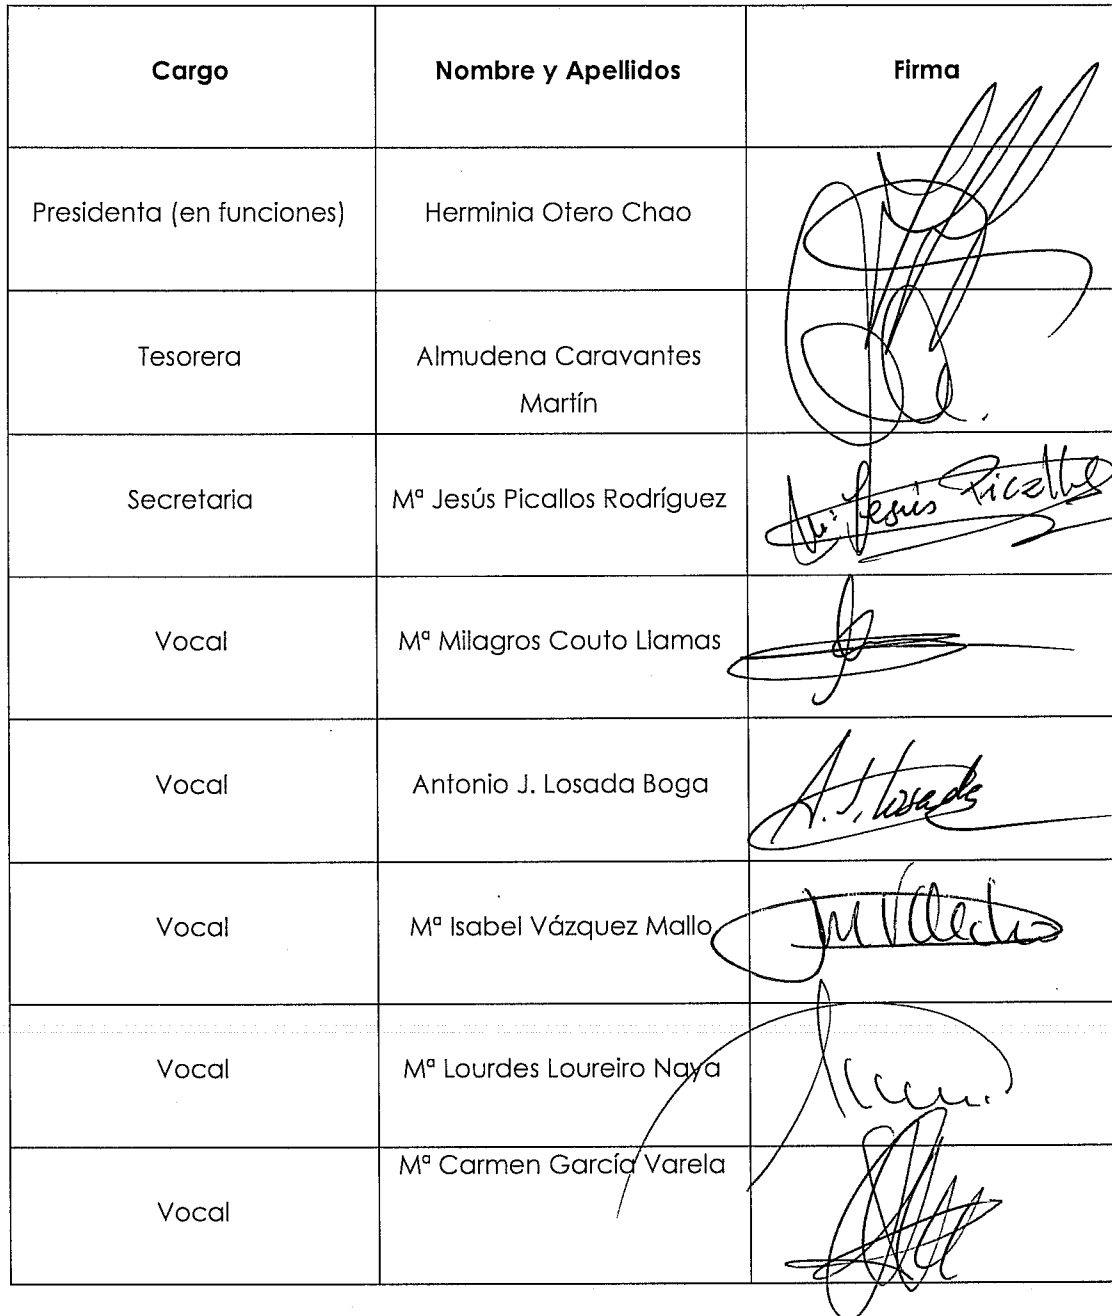 Cargo Nombre y Apellidos Firma
Presidenta (en funciones) Herminia Otero Chao
Tesorera Almudena Caravantes
Martín
Secretaria Mª Jesús Picallos Rodríguez Mª Jesús Picallos
Vocal Mª Milagros Couto Llamas
Vocal Antonio J. Losada Boga A. J. Losada
Vocal Mª Isabel Vázquez Mallo
Vocal Mª Lourdes Loureiro Naya
Mª Carmen García Varela
Vocal